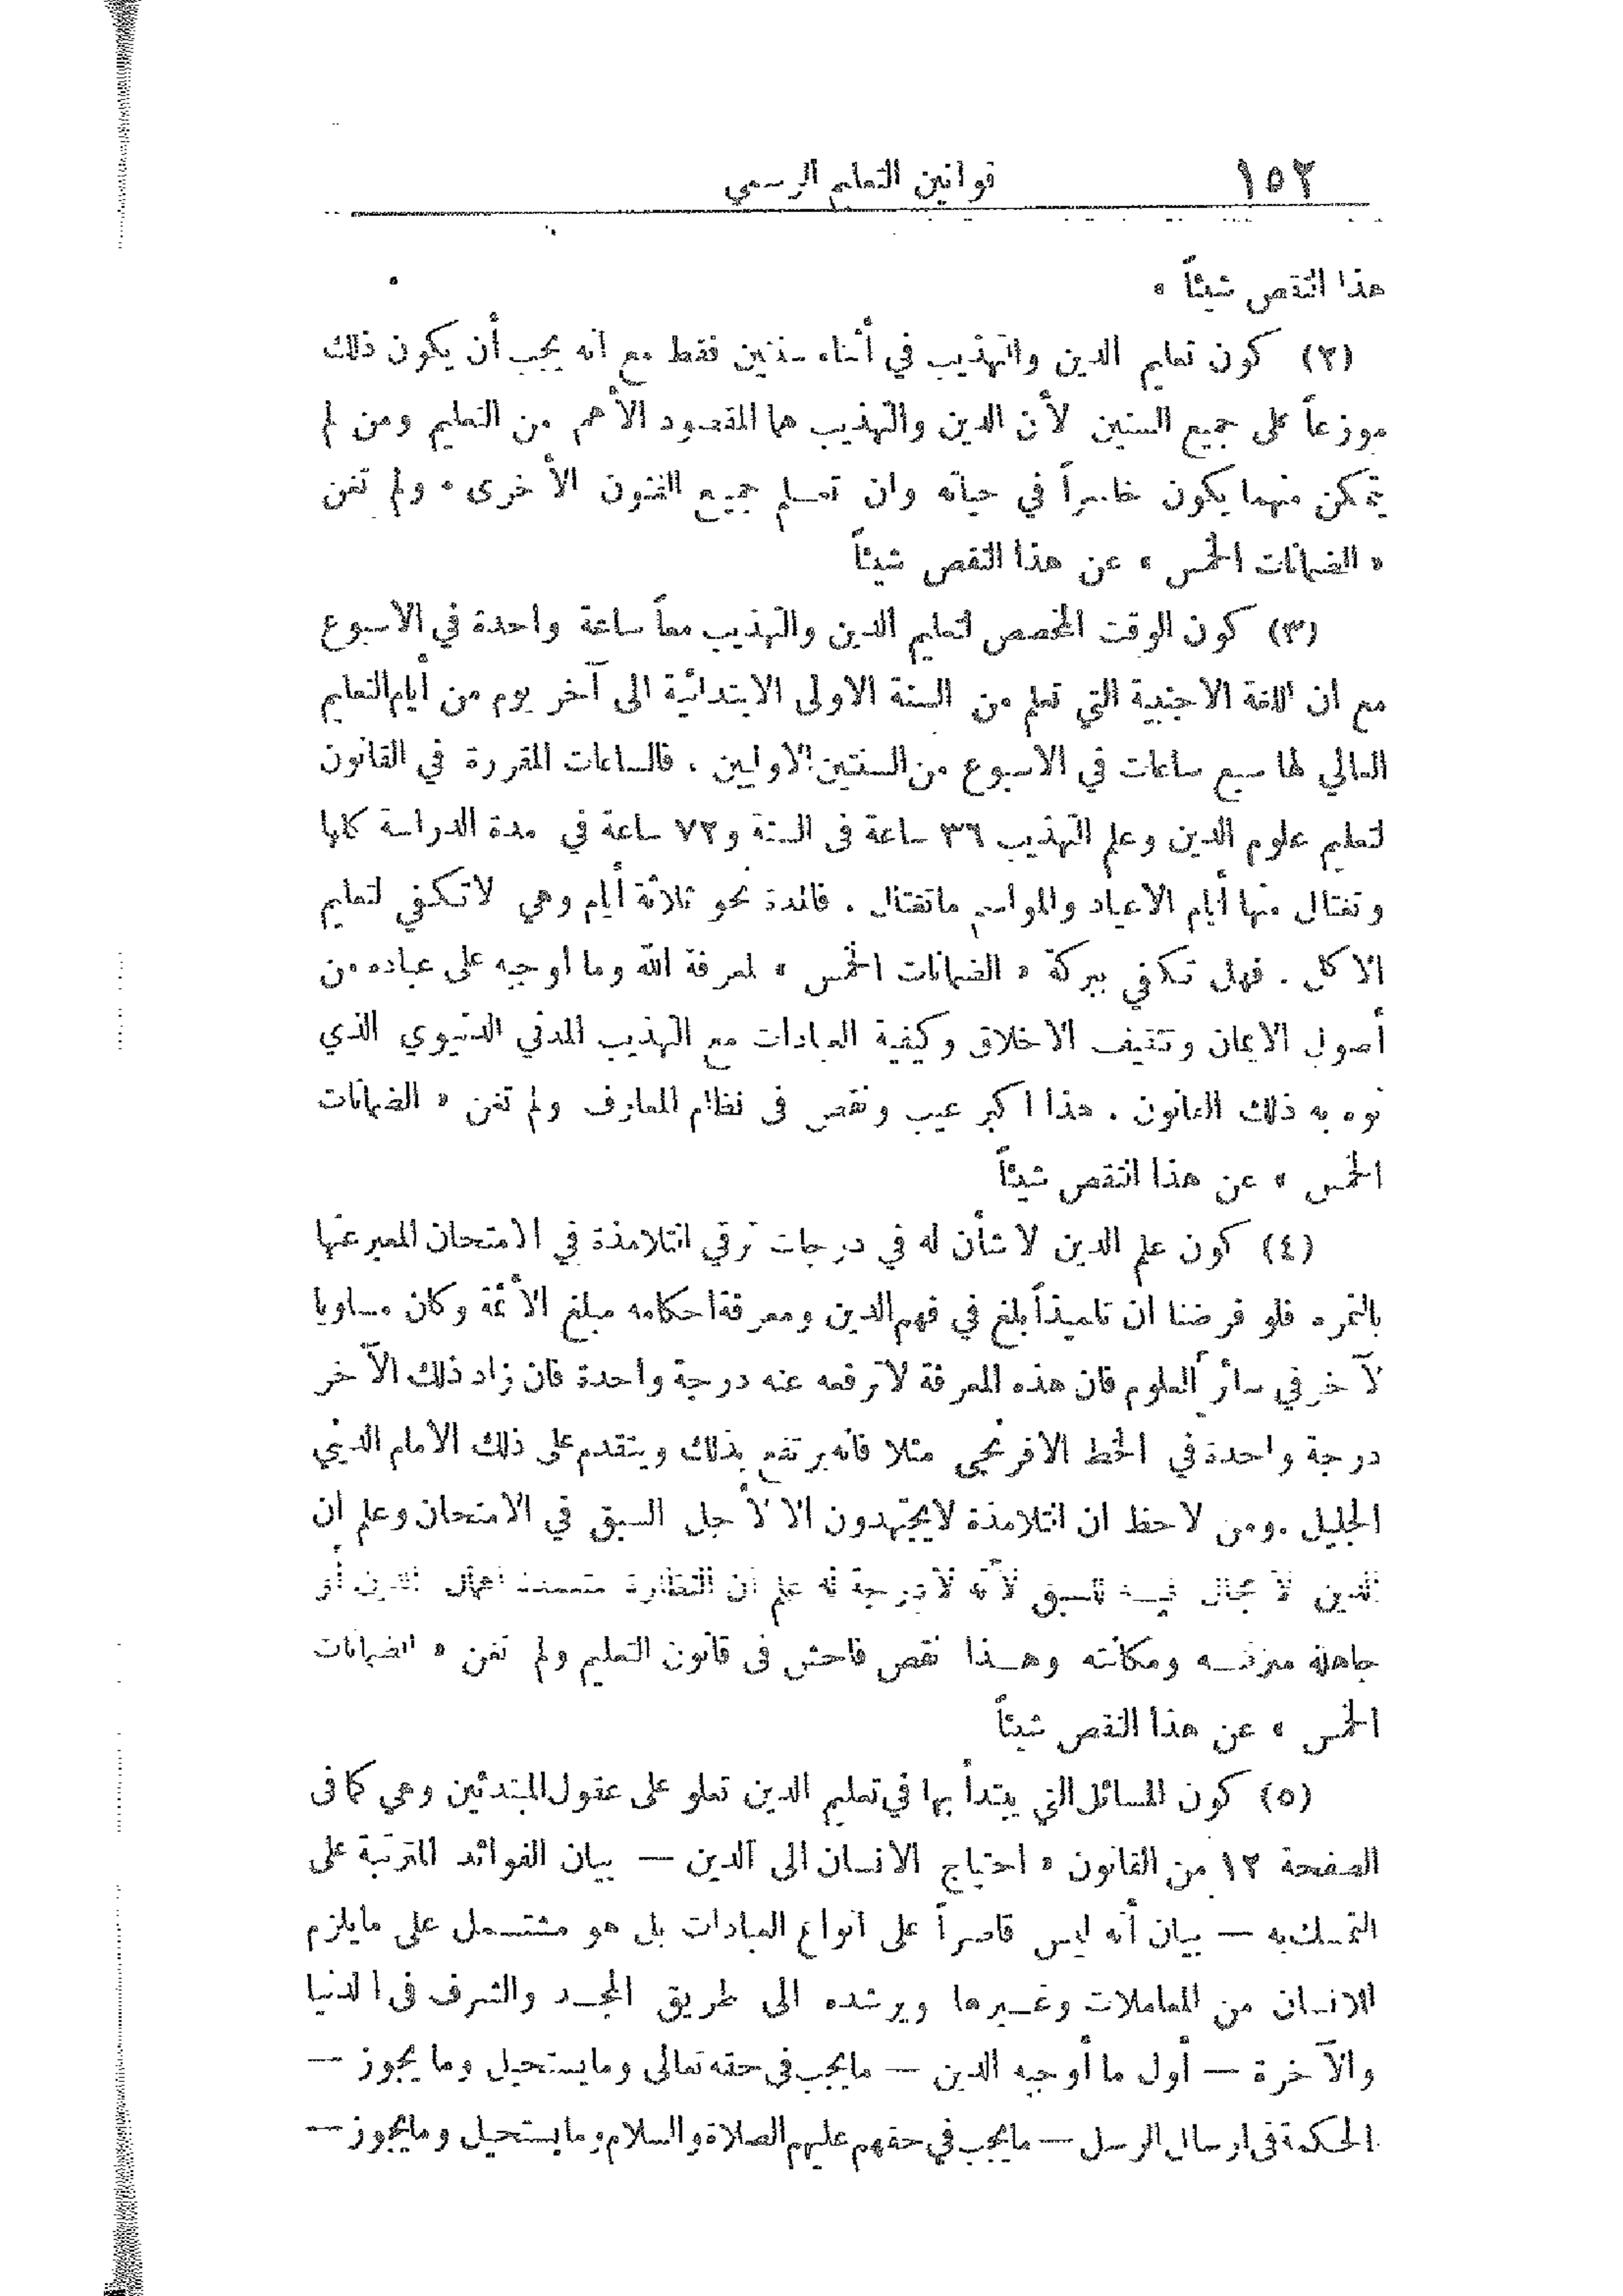 ١٥٢ قوانين التعليم الرسمي
هذا النقص شيئاً .
(٢) كون تعليم الدين والتهذيب في أثناء سنتين فقط مع انه يجب أن يكون ذلك
موزعاً على جميع السنين لأن الدين والتهذيب هما المقصود الأهم من التعليم ومن لم
يتمكن منهما يكون خاسراً في حياته وان تعلم جميع الفنون الأخرى . ولم تغن
« الضمانات الخمس » عن هذا النقص شيئاً
(٣) كون الوقت المخصص لتعليم الدين والتهذيب معاً ساعة واحدة في الاسبوع
مع ان اللغة الاجنبية التي تعلم من السنة الاولى الابتدائية الى آخر يوم من أيام التعليم
العالي لها سبع ساعات في الاسبوع من السنتين الاوليين . فالساعات المقررة في القانون
لتعليم علوم الدين وعلم التهذيب ٣٦ ساعة فى السنة و٧٢ ساعة في مدة الدراسة كلها
وتغتال منها أيام الاعياد والمواسم ماتغتال . فائدة نحو ثلاثة أيام وهي لاتكفي لتعليم
الاكل . فهل تكفي ببركة « الضمانات الخمس » لمعرفة الله وما أوجبه على عباده من
أصول الايمان وتثقيف الاخلاق وكيفية العبادات مع التهذيب المدني الدنيوي الذي
نوه به ذلك القانون . هذا اكبر عيب ونقص فى نظام المعارف ولم تغن « الضمانات
الخمس » عن هذا النقص شيئاً
(٤) كون علم الدين لا شأن له في درجات ترقي التلامذة في الامتحان المعبر عنها
بالنمره فلو فرضنا ان تلميذاً بلغ في فهم الدين ومعرفة احكامه مبلغ الأئمة وكان مساويا
لآخر في سائر العلوم فان هذه المعرفة لاترفعه عنه درجة واحدة فان زاد ذلك الآخر
درجة واحدة في الخط الافرنجي مثلا فانه يرتفع بذلك ويتقدم على ذلك الامام الديني
الجليل . ومن لاحظ ان التلامذة لايجتهدون الا لأجل السبق في الامتحان وعلم ان
الدين لا مجال فيه للسبق لأنه لا درجة له علم ان النظارة متعمدة اهمال الدين أو
جاهلة منزلته ومكانته وهذا نقص فاحش فى قانون التعليم ولم تغن « الضمانات
الخمس » عن هذا النقص شيئاً
(٥) كون المسائل التي يبتدأ بها في تعليم الدين تعلو على عقول المبتدئين وهي كما فى
الصفحة ١٢ من القانون « احتياج الانسان الى الدين — بيان الفوائد المترتبة على
التمسك به — بيان أنه ليس قاصراً على أنواع العبادات بل هو مشتمل على مايلزم
للانسان من المعاملات وغيرها ويرشده الى طريق المجد والشرف فى الدنيا
والآخرة — أول ما أوجبه الدين — مايجب فى حقه تعالى ومايستحيل وما يجوز —
الحكمة فى ارسال الرسل — مايجب في حقهم عليهم الصلاة والسلام ومايستحيل ومايجوز —